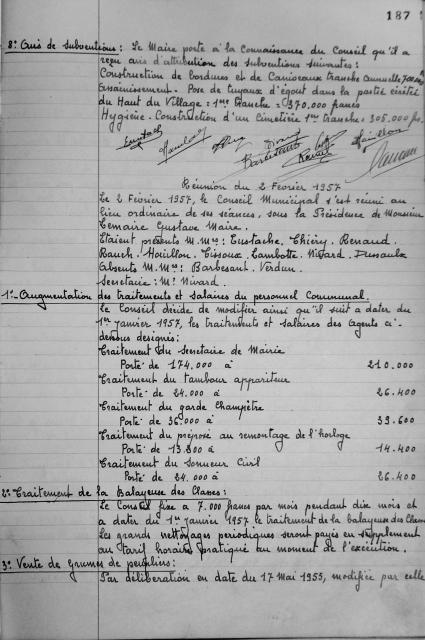 187
8° Avis de subventions: Le Maire porte à la connaissance du Conseil qu'il a
reçu avis d'attribution des subventions suivantes:
Construction de bordures et de Caniveaux tranche annuelle 700.000 f
Assainissement. Pose de tuyaux d'égout dans la partie côté
du Haut du Village: 1ère tranche = 370.000 francs
Hygiène. Construction d'un Cimetière 1ère tranche: 305.000 frs.
Eustach
Barbesant
Renard
Houillon
Réunion du 2 Février 1957
Le 2 Février 1957, le Conseil Municipal s'est réuni au
lieu ordinaire de ses séances, sous la Présidence de Monsieur
Lemaire Gustave Maire.
Etaient présents M.Mrs: Eustache, Thiéry, Renaud.
Rauch. Houillon. Tissoux. Lambotte. Nivard. Dussaulx
Absents M.Mrs: Barbesant. Verdun.
Secrétaire: Mr Nivard.
1°- Augmentation des traitements et salaires du personnel Communal.
Le Conseil décide de modifier ainsi qu'il suit à dater du
1er janvier 1957, les traitements et salaires des Agents ci-
dessous désignés:
Traitement du Secrétaire de Mairie
Porté de 174.000 à 210.000
Traitement du tambour appariteur
Porté de 24.000 à 26.400
Traitement du garde Champêtre
Porté de 36.000 à 39.600
Traitement du préposé au remontage de l'horloge
Porté de 13.200 à 14.400
Traitement du sonneur Civil
Porté de 24.000 à 26.400
2°- Traitement de la Balayeuse des Classes:
Le Conseil fixe à 7.000 francs par mois pendant dix mois et
à dater du 1er janvier 1957 le traitement de la balayeuse des Classes
Les grands nettoyages périodiques seront payés en supplément
au tarif horaire pratiqué au moment de l'exécution.
3°- Vente de grumes de peupliers:
Par délibération en date du 17 Mai 1955, modifiée par celle